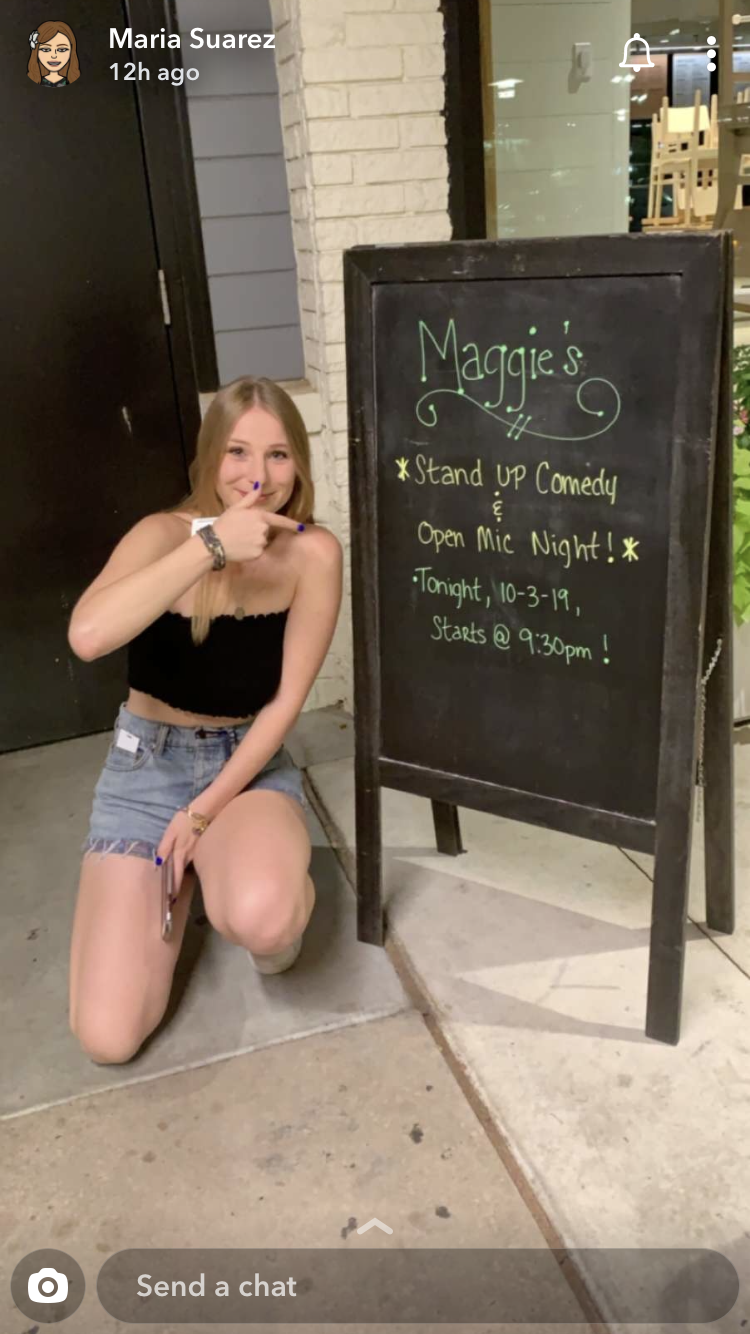 Maria Suarez
12h ago
Maggie's
*Stand UP Comedy
&
Open Mic Night!*
·Tonight, 10-3-19,
Starts @ 9:30pm !
Send a chat